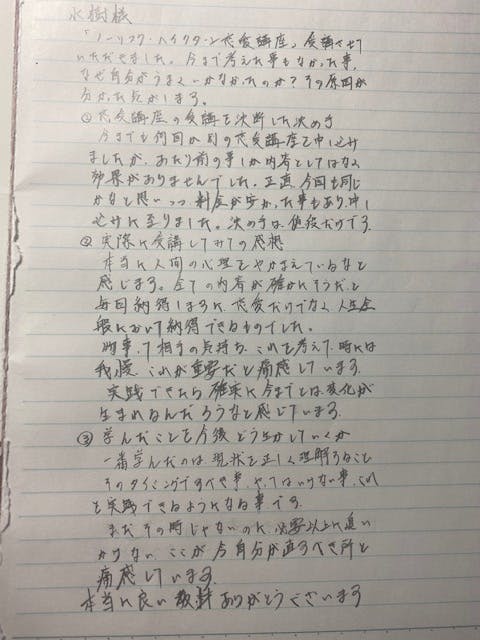 水樹様
「ノーリスク・ハイリターン恋愛講座」受講させて
いただきました。今まで考えた事もなかった事、
なぜ自分がうまくいかなかったのか?その原因が
分かった気がします。
① 恋愛講座の受講を決断した決め手
今までも何回か別の恋愛講座を申し込み
ましたが、あたり前の事しか内容としてはなく
効果がありませんでした。正直、今回も同じ
かなと思いつつ料金が安かった事もあり、申し
込みに至りました。決め手は値段だけです。
② 実際に受講してみての感想
本当に人間の心理をやかまえているなと
感じます。全ての内容が確かにそうだと
毎回納得しますし、恋愛だけでなく、人生全
般において納得できるものでした。
何事って相手の気持ち、これを考えて、時には
我慢 これが重要だと痛感しています。
実践できたら確実に今までとは変化が
生まれるんだろうなと感じています。
③ 学んだことを今後どう生かしていくか
一番学んだのは現状を正しく理解すること
そのタイミングですべき事、やってはいけない事、これ
を実践できるようになる事です。
まだその時じゃないのに、必要以上に追い
かけない ここが今自分が直すべき所と
痛感しています。
本当に良い教材ありがとうございます